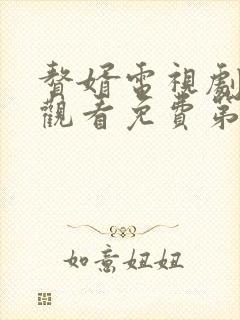 贅婿電視劇
觀看免費第
如意妞妞